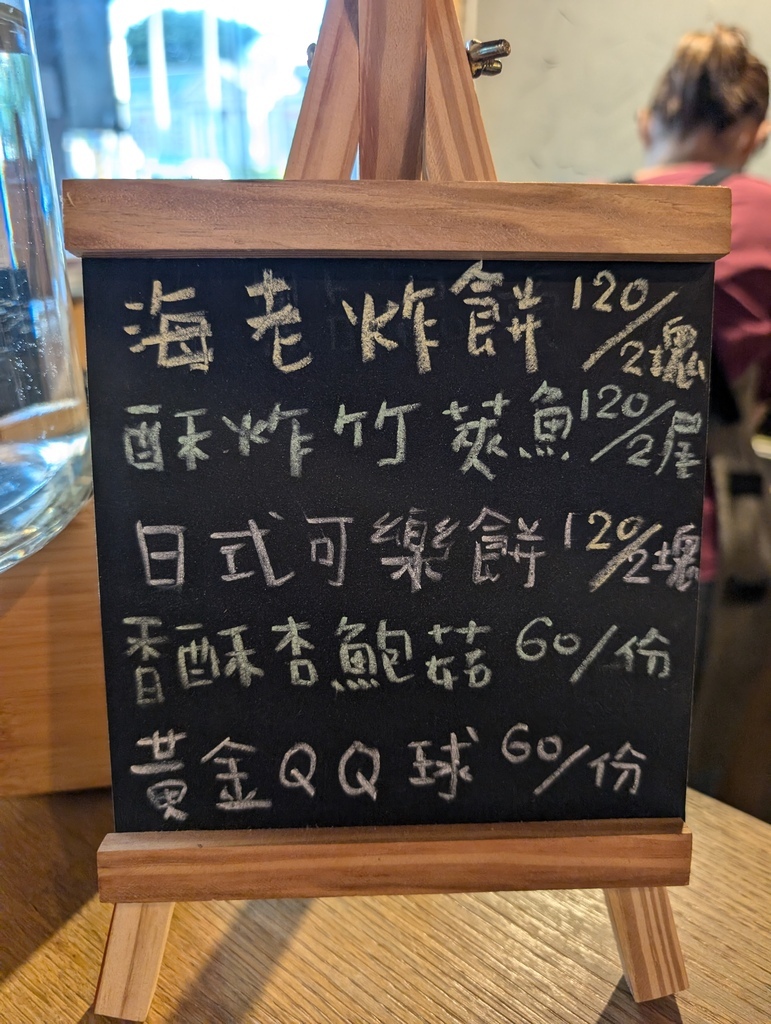 海老炸餅 120/2塊
酥炸竹莢魚 120/2尾
日式可樂餅 120/2塊
香酥杏鮑菇 60/份
黃金QQ球 60/份